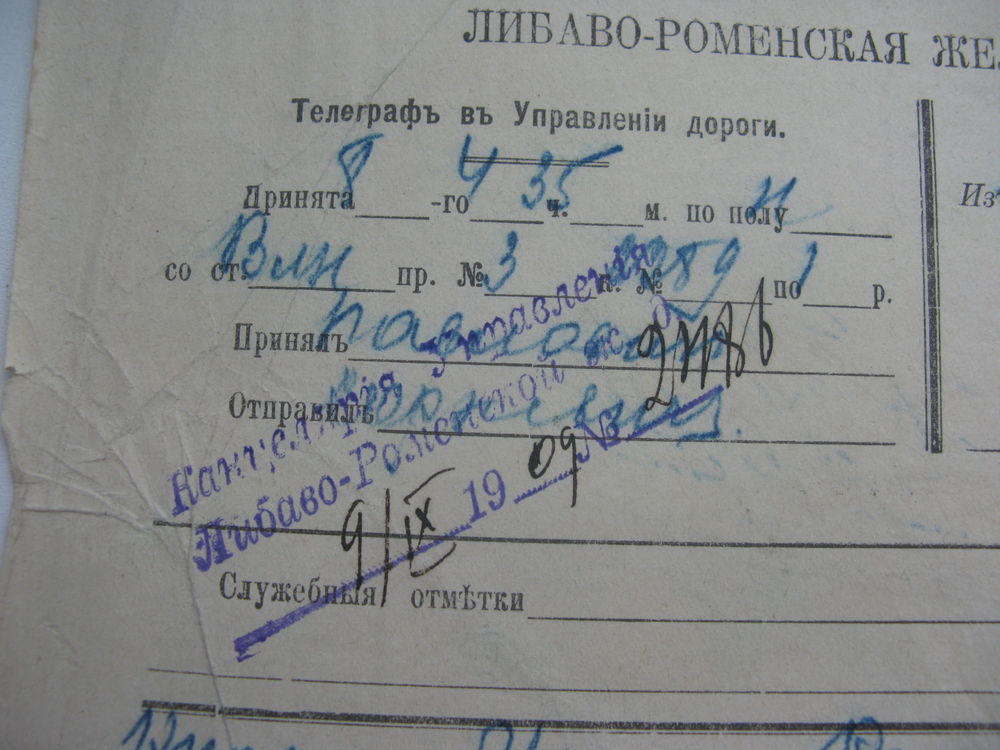 ЛИБАВО-РОМЕНСКАЯ ЖЕЛ
Телеграфъ въ Управленіи дороги.
Принята 8 -го 4 ч. 35 м. по полу н
Из
со ст. Влн пр. № 3 к. № 289 по 1 р.
Принялъ
Отправилъ
Канцелярія Управленія
Либаво-Роменской ж. д.
9/IX 1909 №
Служебныя отмѣтки